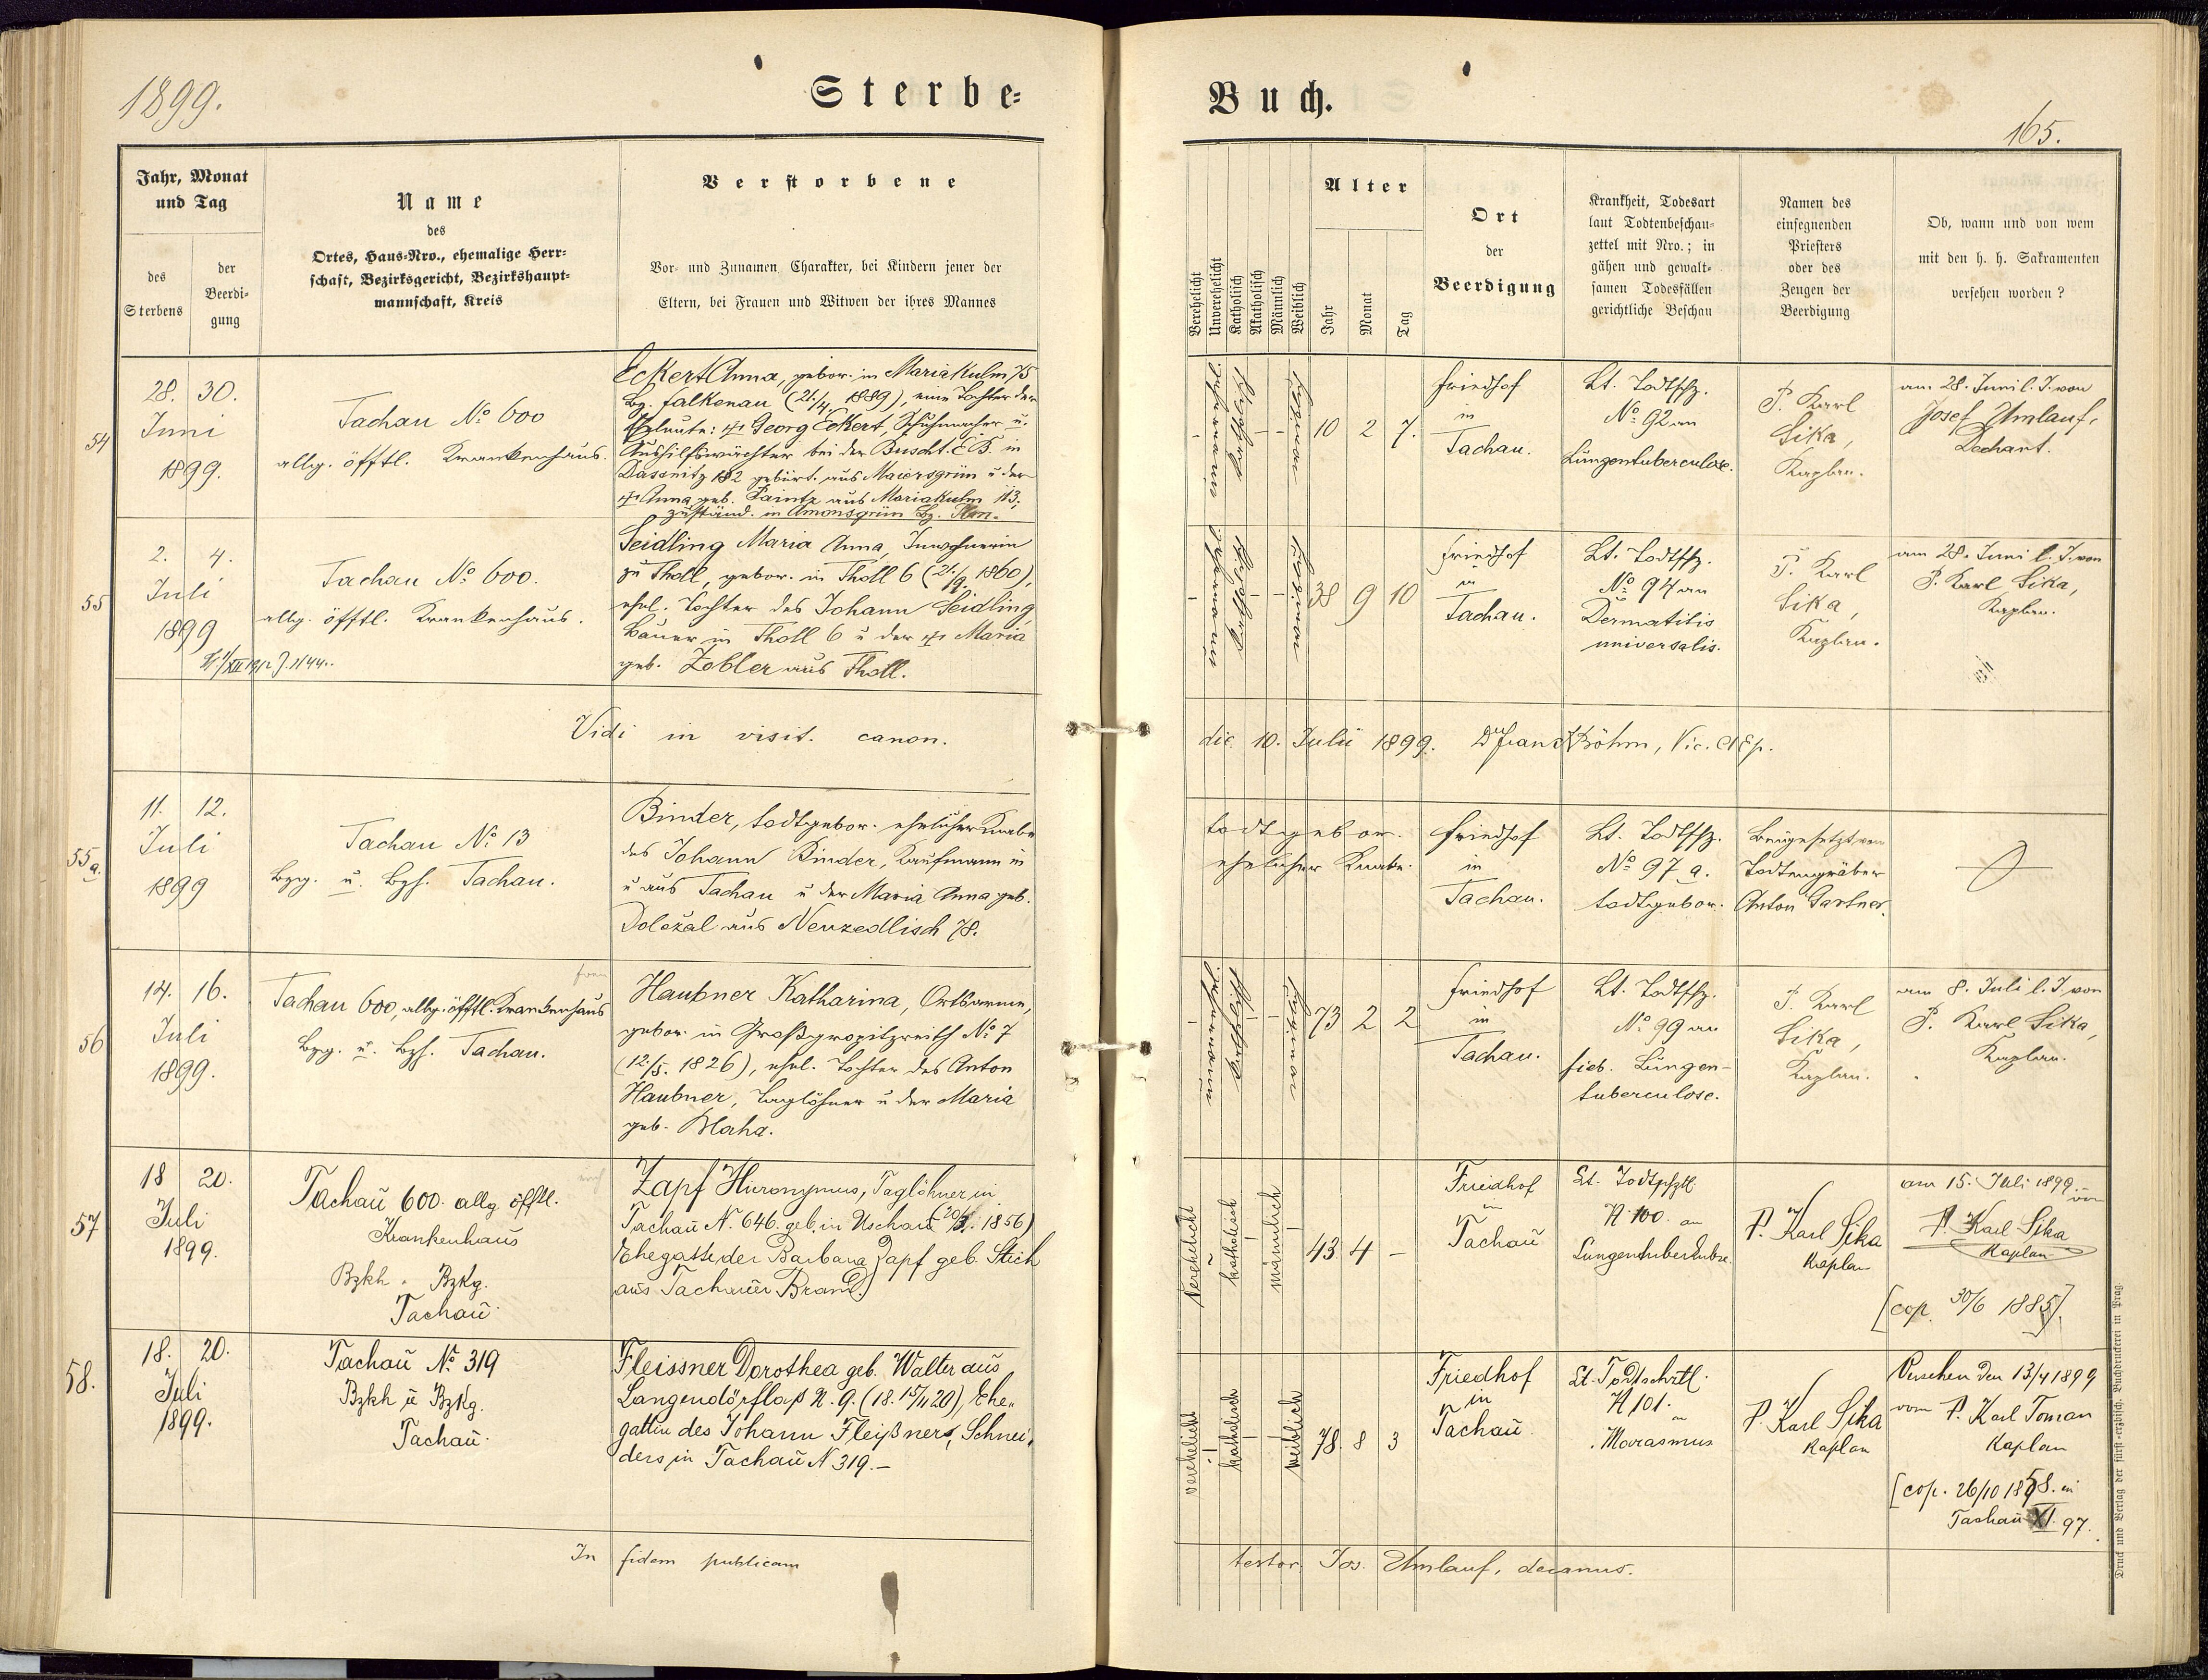 1899.
Sterbe-
Buch.
165.
Jahr, Monat
und Tag
des
Sterbens
der
Beerdi-
gung
Name
des
Ortes, Haus-Nro., ehemalige Herr-
schaft, Bezirksgericht, Bezirkshaupt-
mannschaft, Kreis
Verstorbene
Vor- und Zunamen, Charakter, bei Kindern jener der
Eltern, bei Frauen und Witwen der ihres Mannes
Verehelicht
Unverehelicht
Katholisch
Akatholisch
Männlich
Weiblich
Alter
Jahr
Monat
Tag
Ort
der
Beerdigung
Krankheit, Todesart
laut Todtenbeschau-
zettel mit Nro.; in
gähen und gewalt-
samen Todesfällen
gerichtliche Beschau
Namen des
einsegnenden
Priesters
oder des
Zeugen der
Beerdigung
Ob, wann und von wem
mit den h. h. Sakramenten
versehen worden?
54
28. 30.
Juni
1899.
Tachau No 600
allg. öfftl. Krankenhaus.
Eckert Anna, gebor. in Maria Kulm 75
Bz. Falkenau (21./4. 1889), eine Tochter der
Eheleute: † Georg Eckert, Schuhmacher u.
Aushilfswächter bei der Buscht. E B. in
Dassnitz 182 gebürt. aus Maiersgrün u der
† Anna geb. aus Mariakulm 113;
zuständ. in Amonsgrün Bz. Plan.
10 2 7.
Friedhof
in
Tachau.
Lt. Todtschz.
No 92 an
Lungentuberculose.
P. Karl
Sika,
Kaplan.
am 28. Juni l. J. von
Josef Umlauf,
Dechant.
55
2. 4.
Juli
1899
Tachau No 600.
allg. öfftl. Krankenhaus.
Seidling Maria Anna, Inwohnerin
zu Tholl, gebor. in Tholl 6 (21./9. 1860),
ehel. Tochter des Johann Seidling
Bauer in Tholl 6 u der † Maria
geb. Zobler aus Tholl.
38 9 10
Friedhof
in
Tachau.
Lt. Todtschz.
No 94 an
Dermatitis
universalis.
P. Karl
Sika,
Kaplan.
am 28. Juni l. J. von
P. Karl Sika,
Kaplan.
Vidi in visit. canon.
die 10. Julii 1899. Böhm, Vic.
55 a.
11. 12.
Juli
1899
Tachau No 13
Bzg. u. Bzh. Tachau.
Binder, todtgebor. ehelicher Knabe
des Johann Binder, Kaufmann in
u aus Tachau u der Maria Anna geb.
Dolezal aus Neuzedlisch 78.
todtgebor.
ehelicher Knabe.
Friedhof
in
Tachau.
Lt. Todtschz.
No 97 a.
todtgebor.
Beigesetzt vom
Todtengräber
Anton Gartner.
56
14. 16.
Juli
1899.
Tachau 600, allg. öfftl. Krankenhaus
Bzg. u. Bzh. Tachau.
Haubner Katharina, Ortsarme,
gebor. in Großgropitzreith No 7
(12./5. 1826), ehel. Tochter des Anton
Haubner, Taglöhner u der Maria
geb. Blaha.
73 2 2
Friedhof
in
Tachau.
Lt. Todtschz.
No 99 an
fieb. Lungen-
tuberculose.
P. Karl
Sika,
Kaplan.
am 8. Juli l. J. von
P. Karl Sika,
Kaplan.
57
18 20.
Juli
1899.
Tachau 600. allg öfftl.
Krankenhaus
Bzkh. Bzkg.
Tachau
Zapf Hieronymus, Taglöhner in
Tachau N. 646. geb. in Uschau (20/3. 1856)
Ehegatte der Barbara Zapf geb. Stich
aus Tachauer Brand.)
verehelicht
katholisch
männlich
43. 4 –
Friedhof
in
Tachau
Lt. Todtschztl.
N 100. an
Lungentuberkulose
P. Karl Sika
Kaplan
am 15. Juli 1899 von
P. Karl Sika
Kaplan
[cop. 30/6 1885].
58.
18. 20.
Juli
1899.
Tachau No 319
Bzkh u Bzkg.
Tachau
Fleissner Dorothea geb. Walter aus
Langendörflas N. 9. (18.15/11 20), Ehe-
gattin des Johann Fleißner, Schnei-
ders in Tachau N 319.–
verehelicht
katholisch
weiblich
78. 8 3
Friedhof
in
Tachau.
Lt. Todtschztl.
N 101.
an
Marasmus
P. Karl Sika
Kaplan
Versehen den 13/4 1899
vom P. Karl Toman
Kaplan
[cop. 26/10 1858. in
Tachau XI. 97.
In fidem publicam
testor Jos. Umlauf, decanus.
Druck und Verlag der fürst-erzbisch. Buchdruckerei in Prag